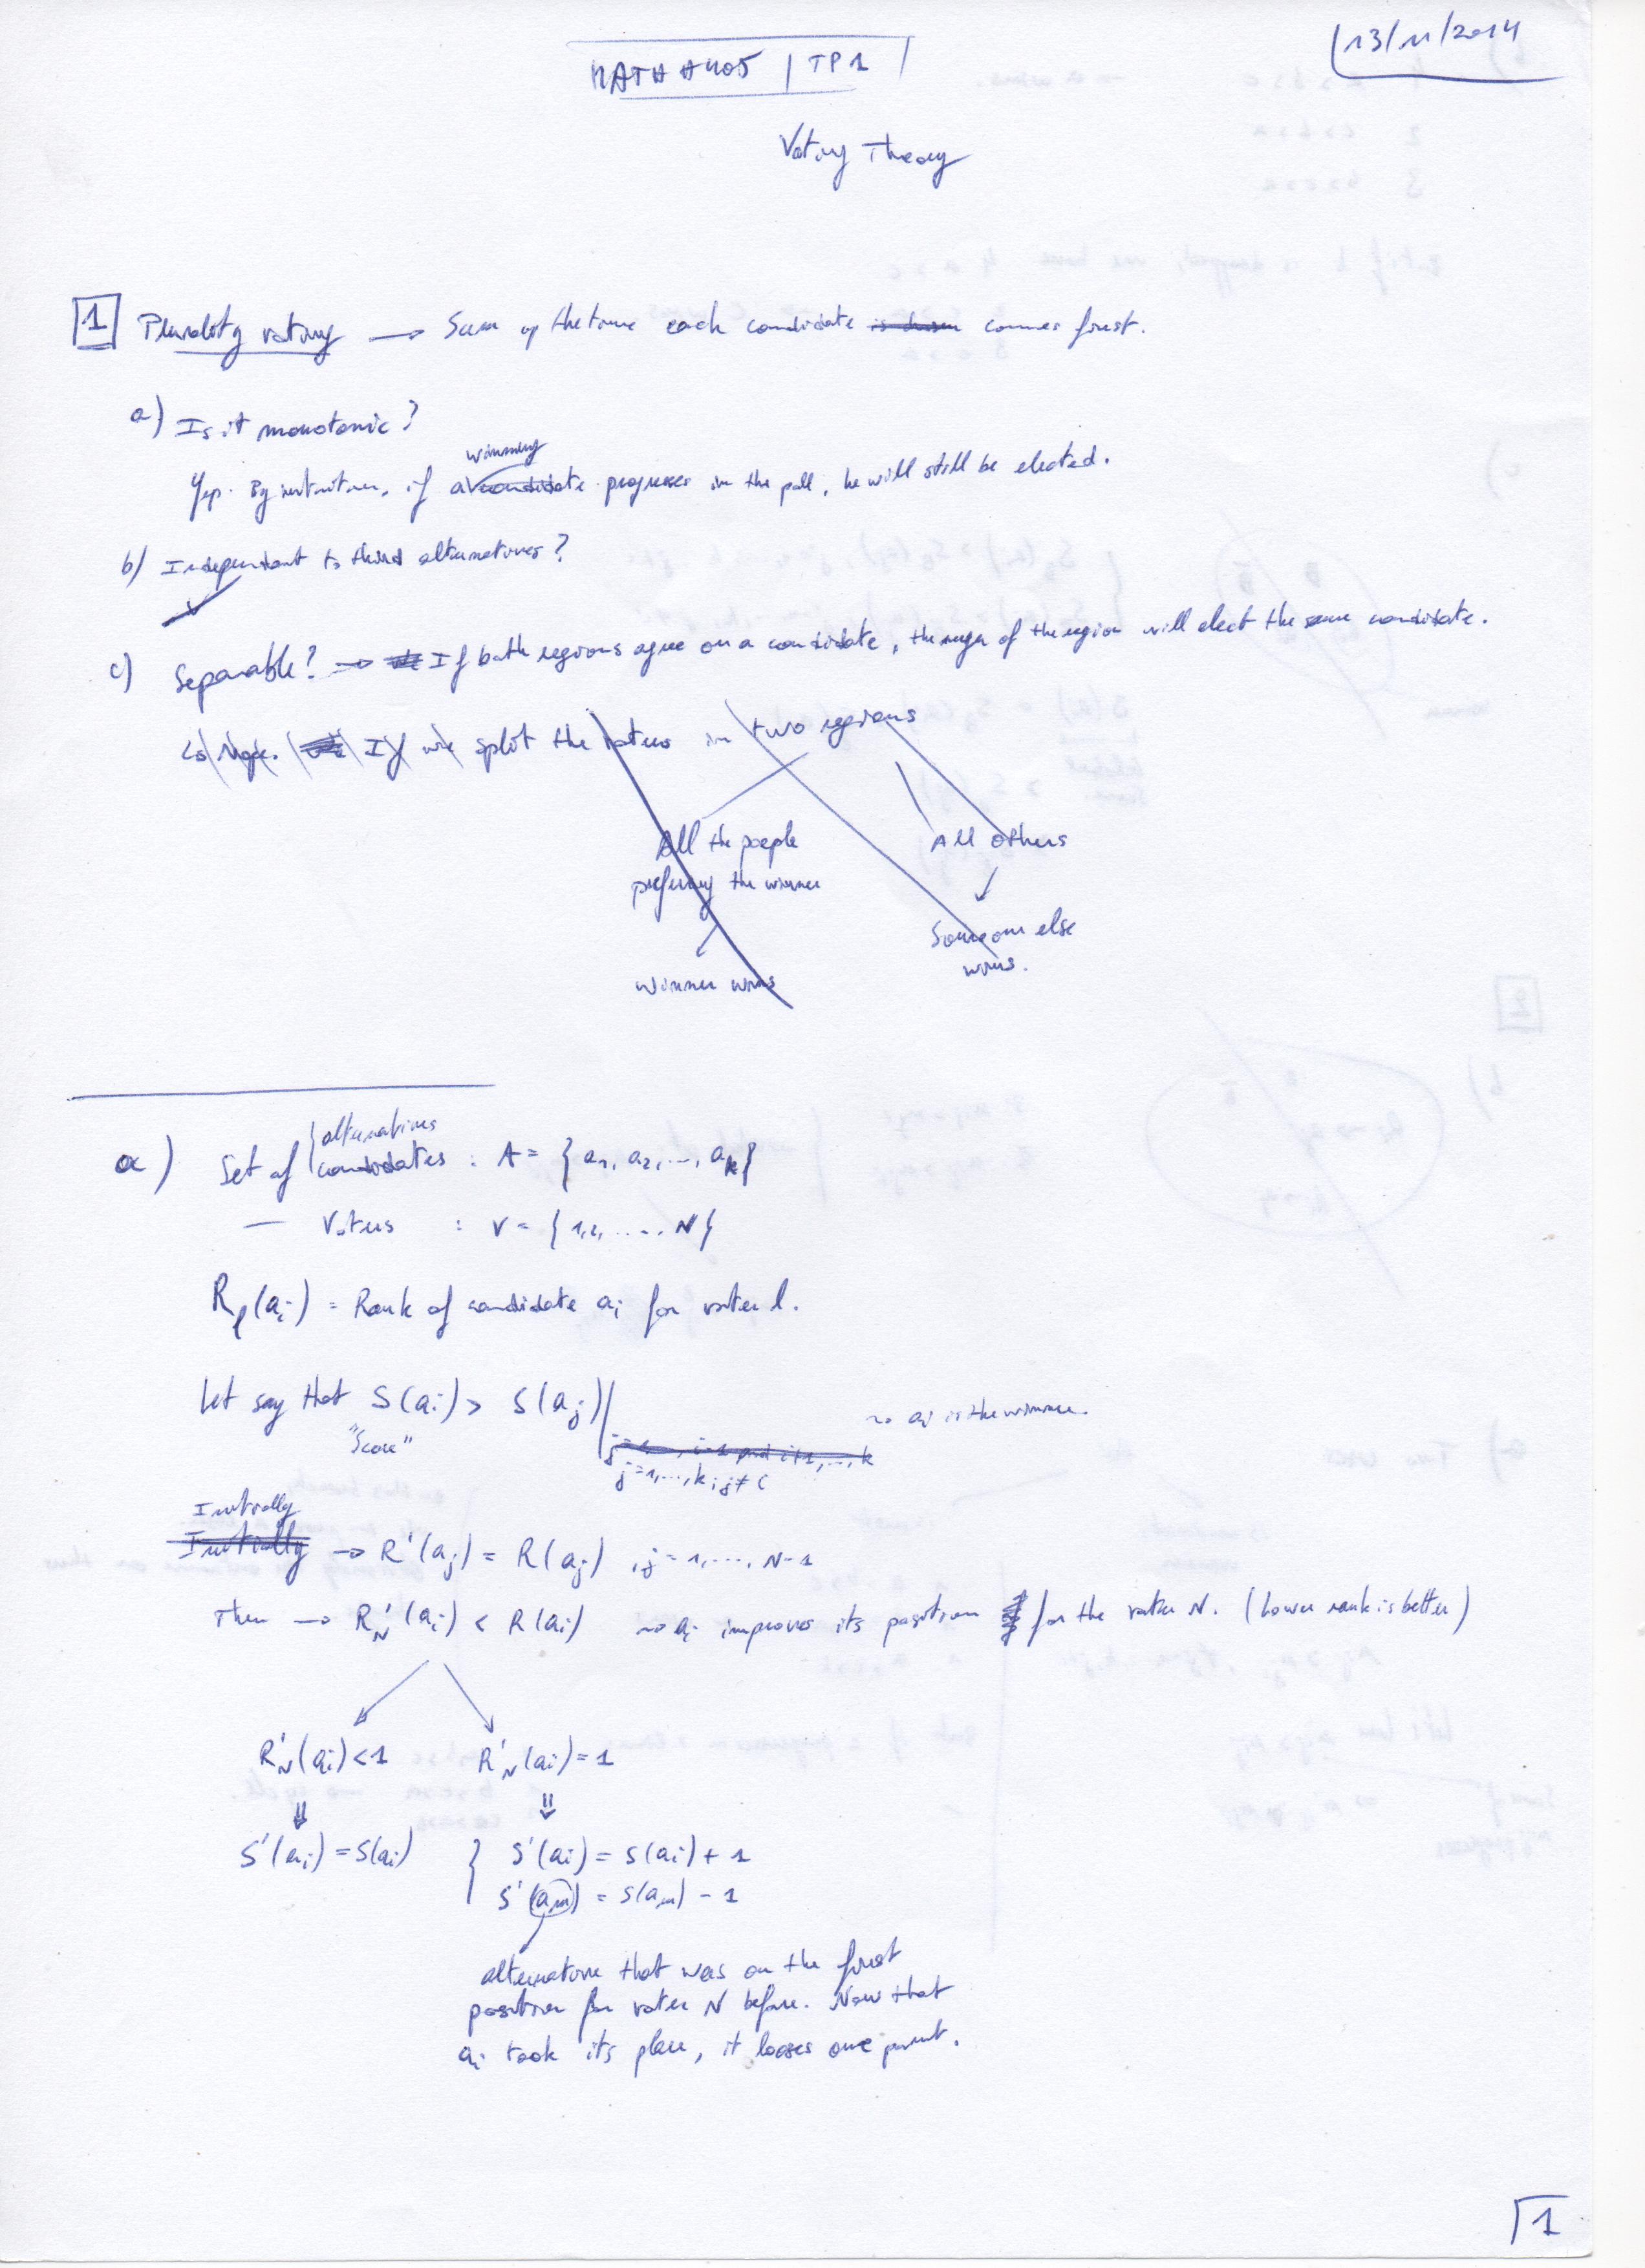 MATH H405 | TP1
13/11/2014
Voting Theory
1 Plurality voting → Sum up the time each candidate is chosen comes first.
a) Is it monotonic?
winning
Yep. By intuition, if a candidate progresses in the poll, he will still be elected.
b) Independent to third alternatives?
c) Separable? → If both regions agree on a candidate, the merge of the region will elect the same candidate.
↳ Nope. If we split the voters in two regions
All the people preferring the winner
All others
Someone else wins.
winner wins
a) Set of candidates : A = {a1, a2, ..., ak}
alternatives
— Voters : V = {1,2, ..... N}
Rl(ai) = Rank of candidate ai for voter l.
Let say that S(ai) > S(aj) | ~> ai is the winner.
"Score"
j=1,...,i-1 and i+1,...,k
j=1,...,k ; j≠i
Initially
Initially → R'(aj) = R(aj) , j = 1,...., N-1
Then → R'N(ai) < R(ai) ~> ai improves its position for the voter N. (Lower rank is better)
R'N(ai)<1 R'N(ai)=1
⇓ ⇓
S'(ai) = S(ai) { S'(ai) = S(ai) + 1
S'(am) = S(am) - 1
alternative that was on the first
position for voter N before. Now that
ai took its place, it looses one point.
1